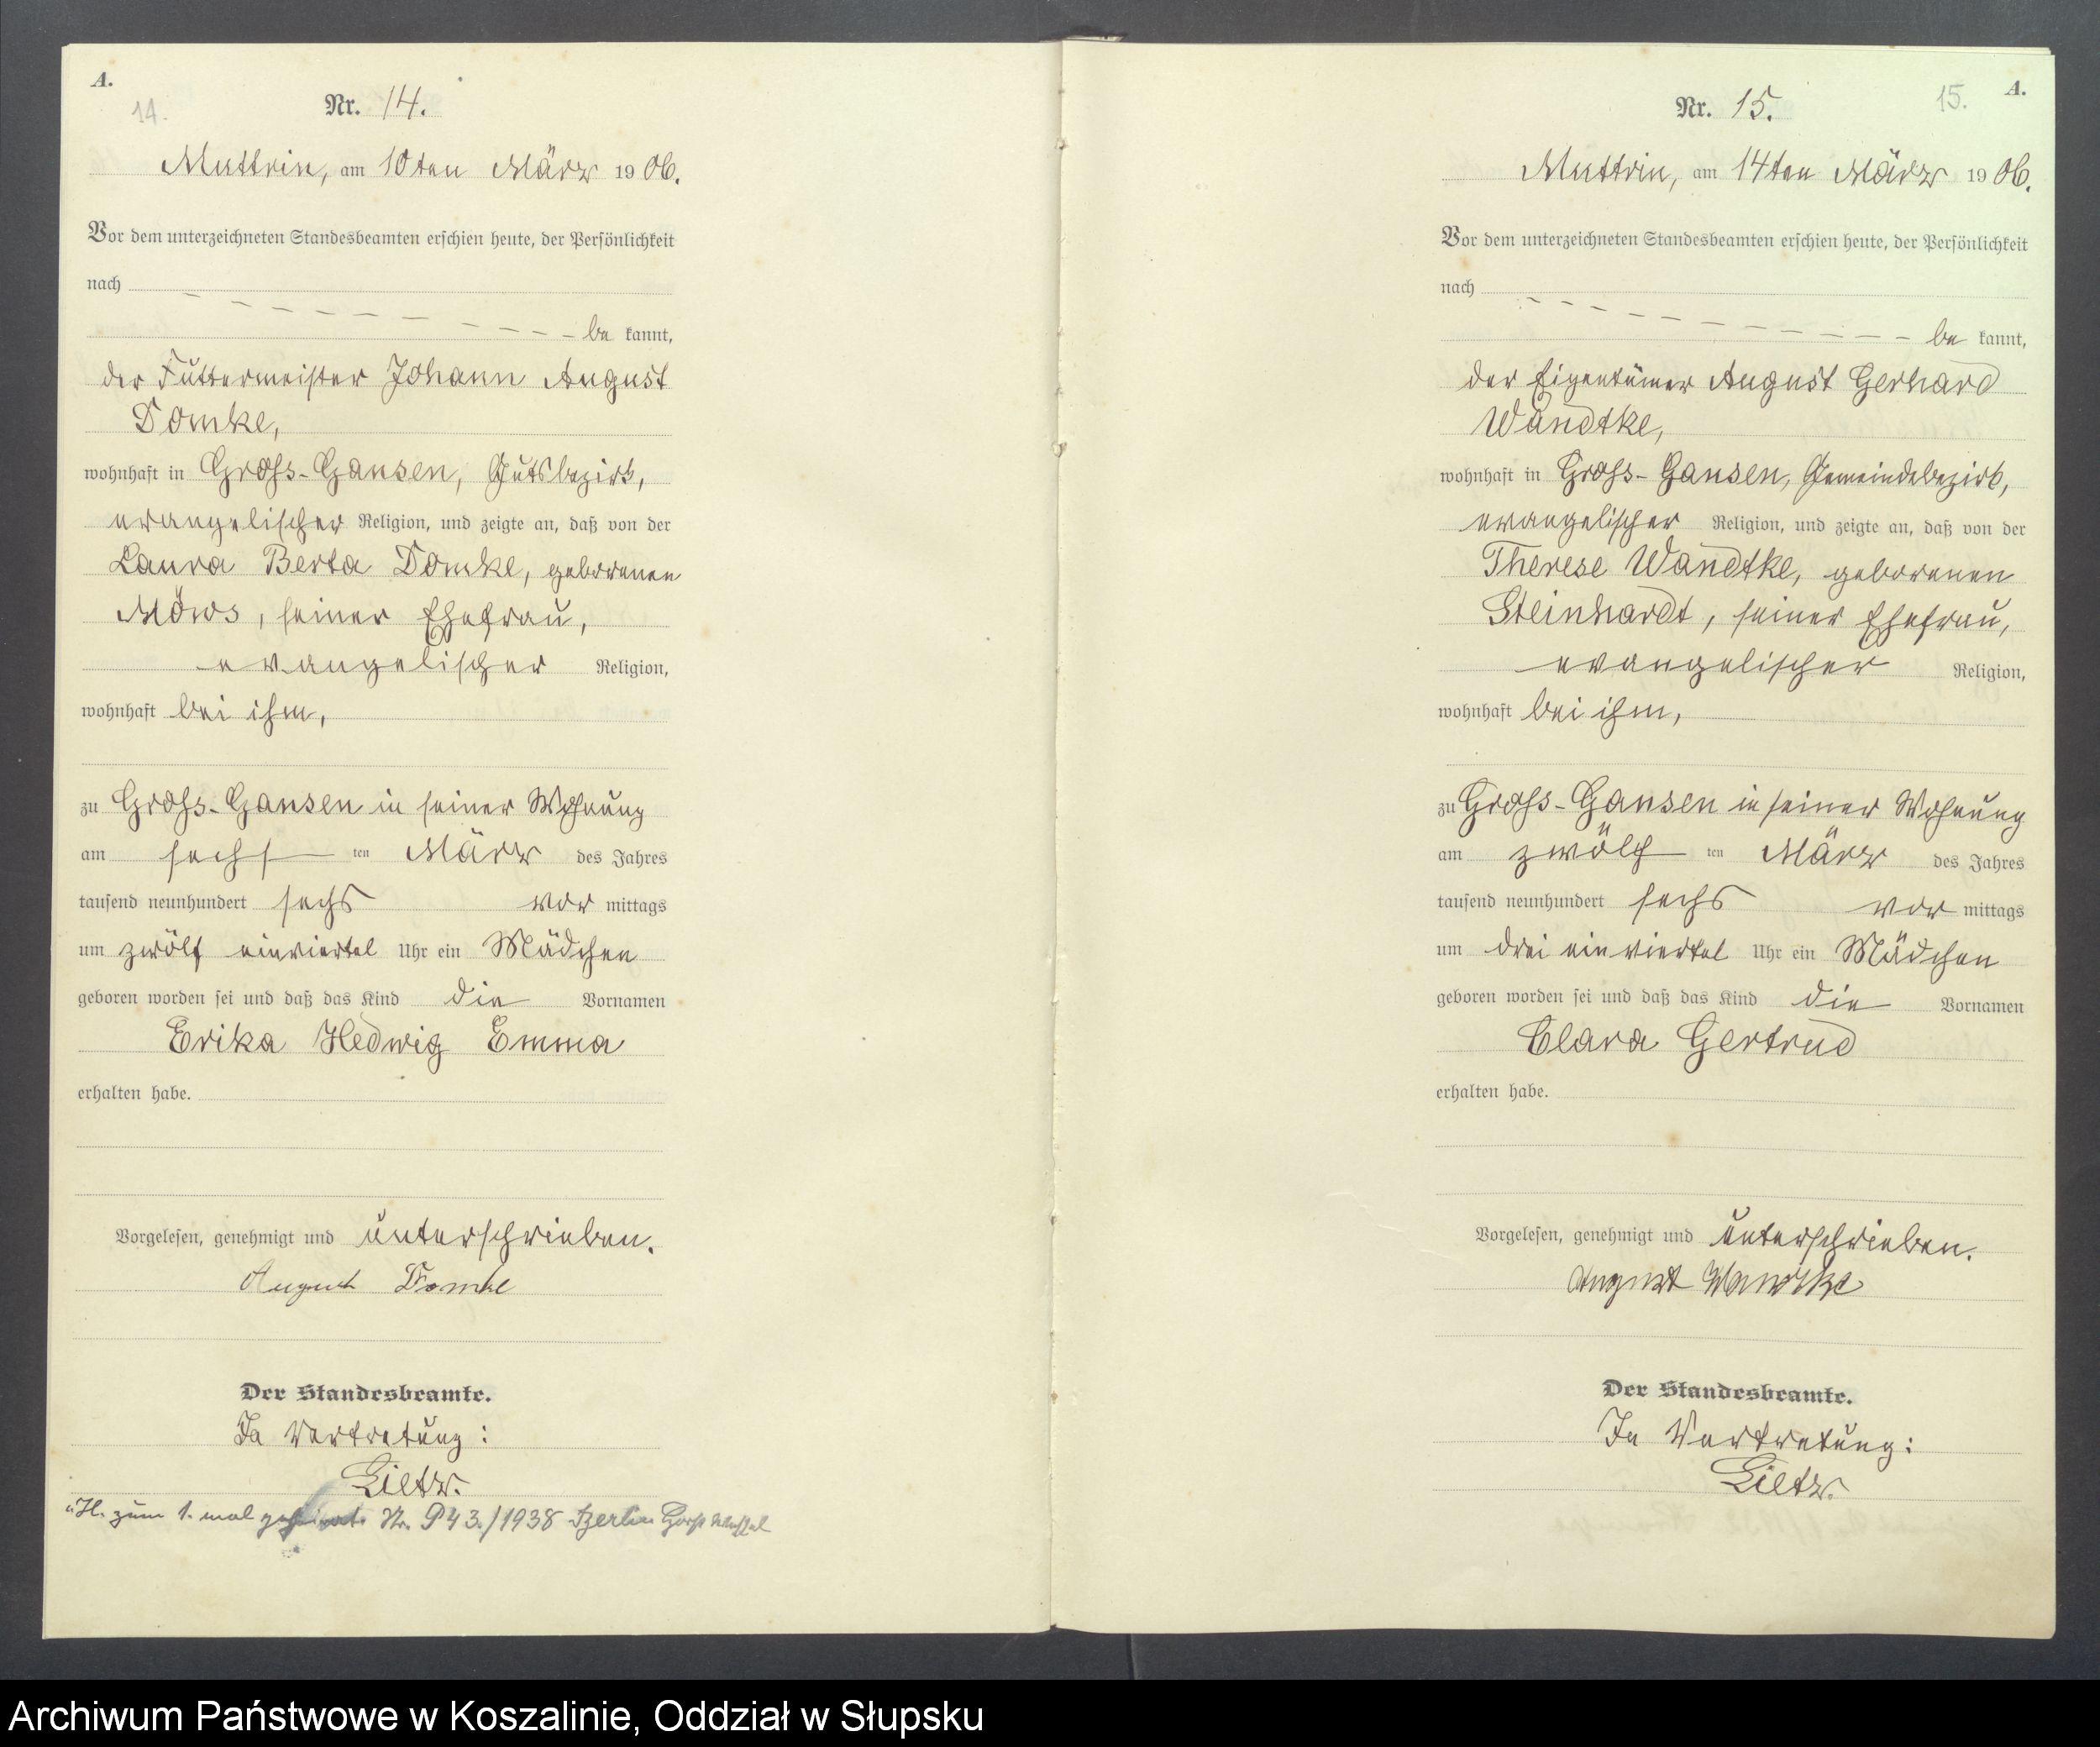 A.
14.
Nr. 14.
Muttrin, am 10ten März 1906.
Vor dem unterzeichneten Standesbeamten erschien heute, der Persönlichkeit
nach
be kannt,
der Futtermeister Johann August
Domke,
wohnhaft in Gross-Gansen, Gutsbezirk,
evangelischer Religion, und zeigte an, daß von der
Laura Berta Domke, geborenen
Möws, seiner Ehefrau,
evangelischer Religion,
wohnhaft bei ihm,
zu Gross-Gansen in seiner Wohnung
am sechs ten März des Jahres
tausend neunhundert sechs vor mittags
um zwölf einviertel Uhr ein Mädchen
geboren worden sei und daß das Kind die Vornamen
Erika Hedwig Emma
erhalten habe.
Vorgelesen, genehmigt und unterschrieben.
August Domke
Der Standesbeamte.
In Vertretung:
Lietz.
H. zum 1. mal geheirat. Nr. 943./1938 Berlin
A.
15.
Nr. 15.
Muttrin, am 14ten März 1906.
Vor dem unterzeichneten Standesbeamten erschien heute, der Persönlichkeit
nach
be kannt,
der Eigentümer August Gerhard
Wandtke,
wohnhaft in Gross-Gansen, Gemeindebezirk,
evangelischer Religion, und zeigte an, daß von der
Therese Wandtke, geborenen
Steinhardt, seiner Ehefrau,
evangelischer Religion,
wohnhaft bei ihm,
zu Gross-Gansen in seiner Wohnung
am zwölf ten März des Jahres
tausend neunhundert sechs vor mittags
um drei einviertel Uhr ein Mädchen
geboren worden sei und daß das Kind die Vornamen
Clara Gertrud
erhalten habe.
Vorgelesen, genehmigt und unterschrieben.
August Wandtke
Der Standesbeamte.
In Vertretung:
Lietz.
Archiwum Państwowe w Koszalinie, Oddział w Słupsku